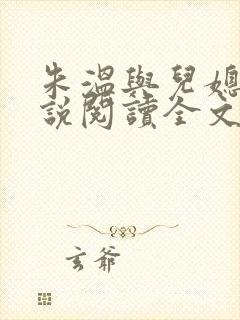 朱溫與兒媳
說閱讀全文
玄爺